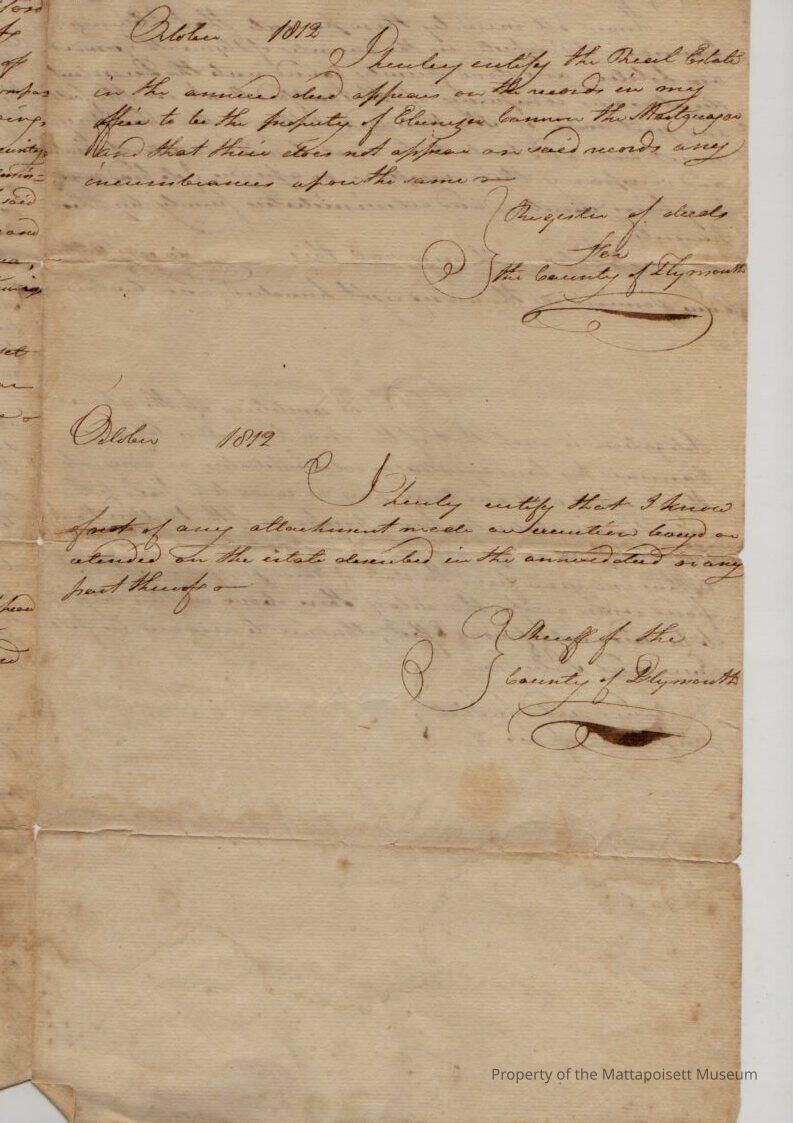 October 1812
I hereby certify the Real Estate
in the annexed deed appears on the records in my
office to be the property of Ebenezer Cannon the Mortgagor
and that their does not appear on said records any
incumbrances upon the same
Register of deeds
For
the County of Plymouth
October 1812
I hereby certify that I know
not of any attachment made or execution or
extended on the estate described in the annexed deed or any
part thereof
Sheriff of the
County of Plymouth
said
and
Property of the Mattapoisett Museum